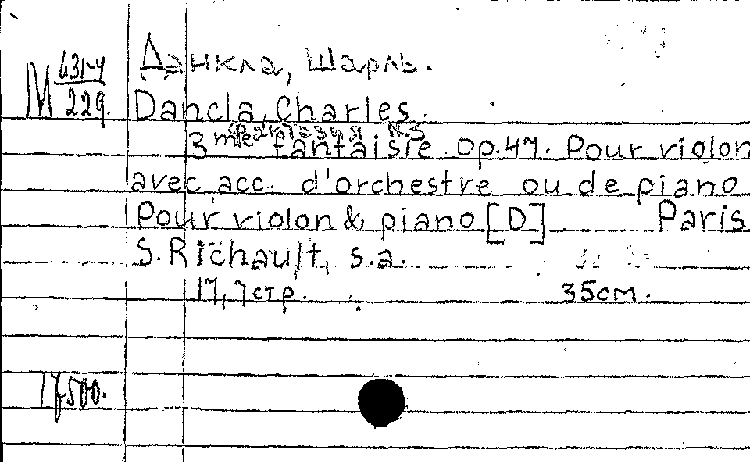 М 631-4
229
Данкла, Шарль.
Dancla, Charles.
3 me fantaisie. Op.47. Pour violon
avec acc. d'orchestre ou de piano
Pour violon & piano [D] Paris
S. Richault, s.a.
17, 7 стр. 35 см.
17500.